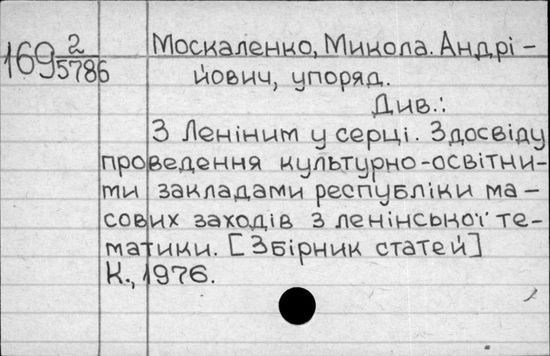 169 2/5786 Москаленко, Микола. Андрі-
йович, упоряд.
Див.:
З Леніним у серці. З досвіду
проведення культурно-освітни-
ми закладами республіки ма-
сових заходів з ленінської те-
матики. [Збірник статей]
К., 1976.